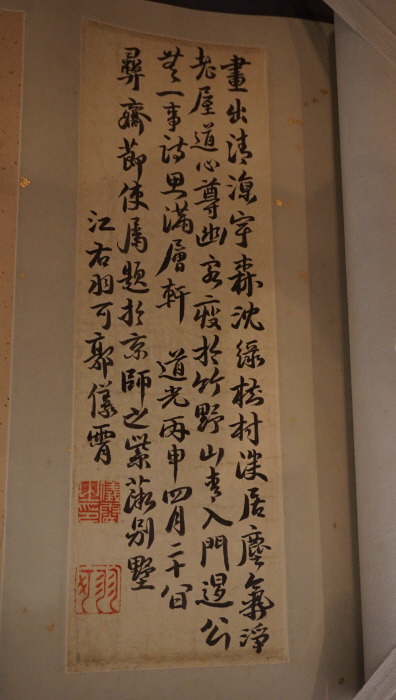 畫出清涼宇森沈綠樹村深居塵氣淨
老屋道心尊幽客瘦於竹野山青入門退公
無一事詩思滿層軒 道光丙申四月二十日
彝齋節使屬題於京師之紫藤別墅
江右羽可郭儀霄
羽可